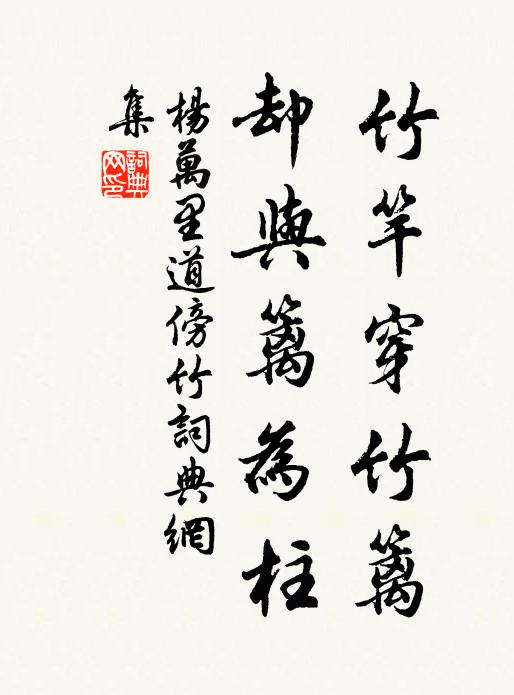 竹竿穿竹籬
却與籬為柱
楊萬里道傍竹詞典網
集
詞典
网印